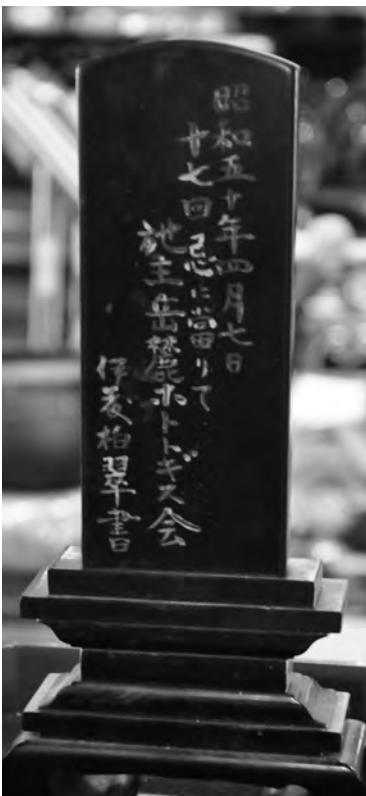 昭和五十年四月七日
廿七回忌に當りて
施主岳麓ホトトギス会
伊藤柏翠書